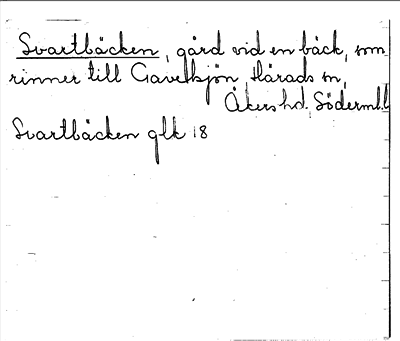 Svartbäcken, gård vid en bäck, som
rinner till Gavelsjön, Härads sn,
Åkers hd. Söderml.
Svartbäcken glk 18